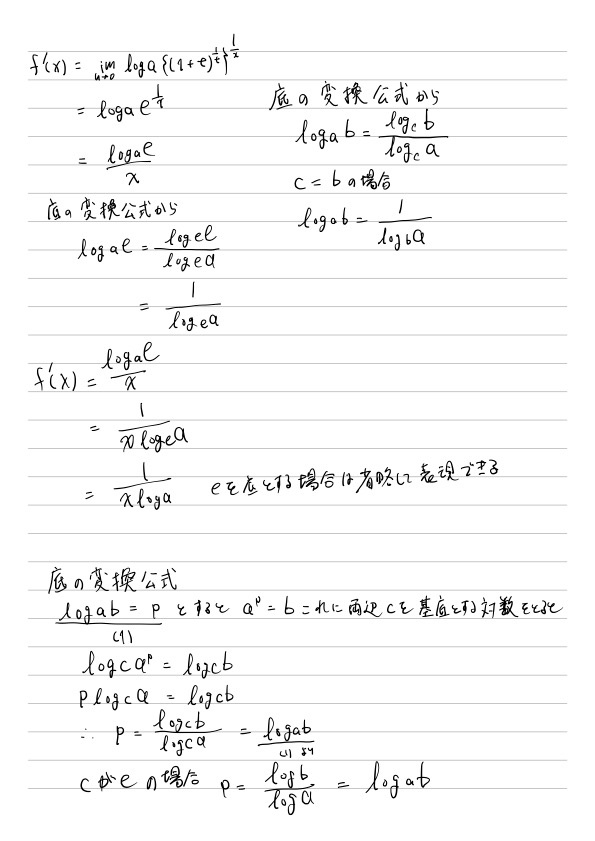 f'(x) = lim_{u→0} log_a {(1+e)^{1/t}}^{1/x}
= log_a e^{1/x}
= log_a e / x
底の変換公式から
log_a b = log_c b / log_c a
c = b の場合
log_a b = 1 / log_b a
底の変換公式から
log_a e = log_e e / log_e a
= 1 / log_e a
f'(x) = log_a e / x
= 1 / x log_e a
= 1 / x log a eを底とする場合は省略して表現できる
底の変換公式
log_a b = p とすると a^p = b これに両辺cを基底とする対数をとると
(1)
log_c a^p = log_c b
p log_c a = log_c b
∴ p = log_c b / log_c a = log_a b
(1) より
cがeの場合 p = log b / log a = log_a b